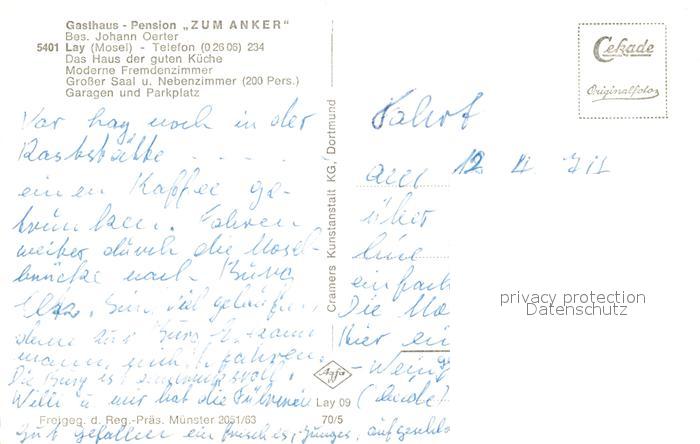 Gasthaus - Pension „ZUM ANKER"
Bes. Johann Oerter
5401 Lay (Mosel) - Telefon (0 26 06) 234
Das Haus der guten Küche
Moderne Fremdenzimmer
Großer Saal u. Nebenzimmer (200 Pers.)
Garagen und Parkplatz
Cekade
Originalfoto
Vor hag noch in der
Raststätte - - - -
einen Kaffee ge-
trunken. Fahren
weiter durch die Mosel-
brücke nach Burg
Eltz. Sind viel gelaufen,
denn zur Burg
mann nicht fahren.
Die Burg ist eindrucksvoll.
Willi u. mir hat die Führerin
gut gefallen ein frisches, junges, aufgeschlo
Fahrt
12 4 71
über
eine
einfach
Die Mo
Hier ein
- Wein
Cramers Kunstanstalt KG, Dortmund
Agfa
Lay 09
Freigeg. d. Reg.-Präs. Münster 2051/63
70/5
privacy protection
Datenschutz